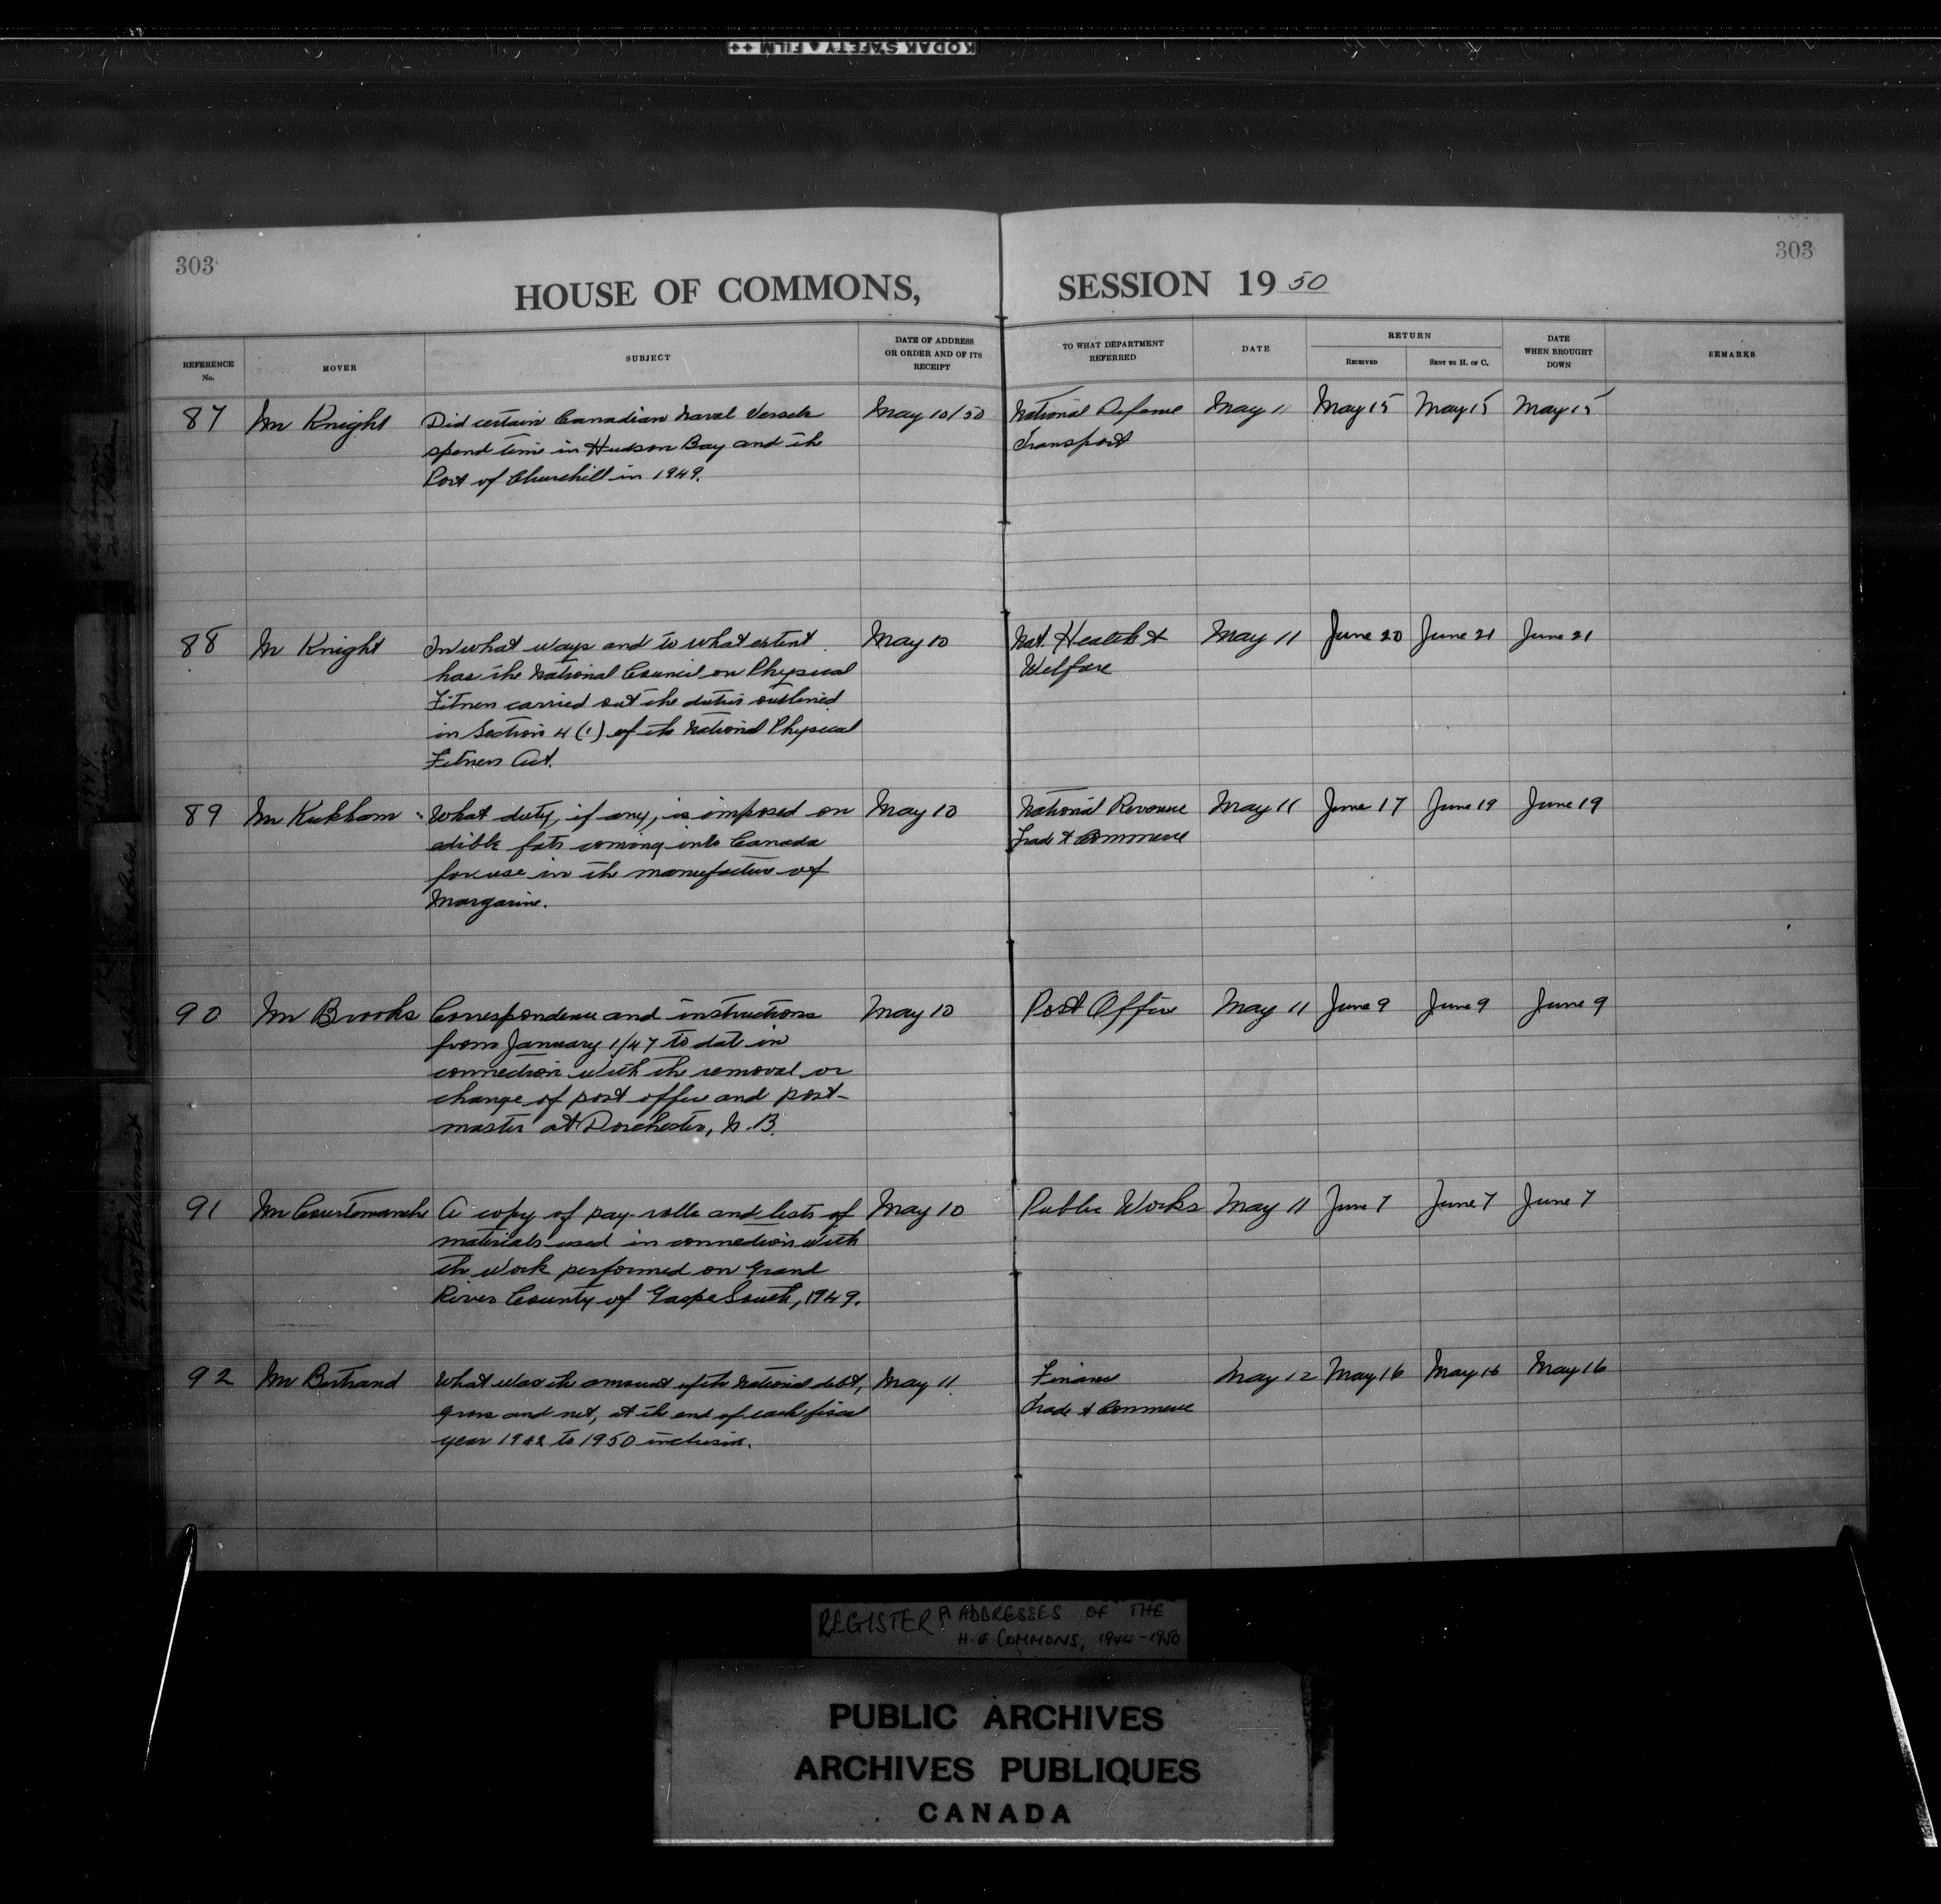 KODAK SAFETY FILM
303
303
HOUSE OF COMMONS,
SESSION 19 50
REFERENCE No.
MOVER
SUBJECT
DATE OF ADDRESS OR ORDER AND OF ITS RECEIPT
TO WHAT DEPARTMENT REFERRED
DATE
RETURN
RECEIVED
SENT TO H. OF C.
DATE WHEN BROUGHT DOWN
REMARKS
87 Mr Knight Did certain Canadian Naval Vessels May 10/50 National Defense May 11 May 15 May 15 May 15
spend time in Hudson Bay and the Transport
Port of Churchill in 1949.
88 Mr Knight In what ways and to what extent May 10 Nat. Health & May 11 June 20 June 21 June 21
has the National Council on Physical Welfare
Fitness carried out the duties outlined
in Section 4 (1) of the National Physical
Fitness Act.
89 Mr Kirkham What duty, if any, is imposed on May 10 National Revenue May 11 June 17 June 19 June 19
edible fats coming into Canada Trade & Commerce
for use in the manufacture of
Margarine.
90 Mr Brooks Correspondence and instructions May 10 Post Office May 11 June 9 June 9 June 9
from January 1/47 to date in
connection with the removal or
change of post office and post-
master at Dorchester, N.B.
91 Mr Courtemanche A copy of pay-rolls and lists of May 10 Public Works May 11 June 7 June 7 June 7
materials used in connection with
the work performed on Grand
River County of Gaspe South, 1949.
92 Mr Bertrand What was the amount of the National debt, May 11 Finance May 12 May 16 May 16 May 16
gross and net, at the end of each fiscal Trade & Commerce
year 1942 to 1950 inclusive.
REGISTER ADDRESSES OF THE
H. of COMMONS, 1944-1950
PUBLIC ARCHIVES
ARCHIVES PUBLIQUES
CANADA